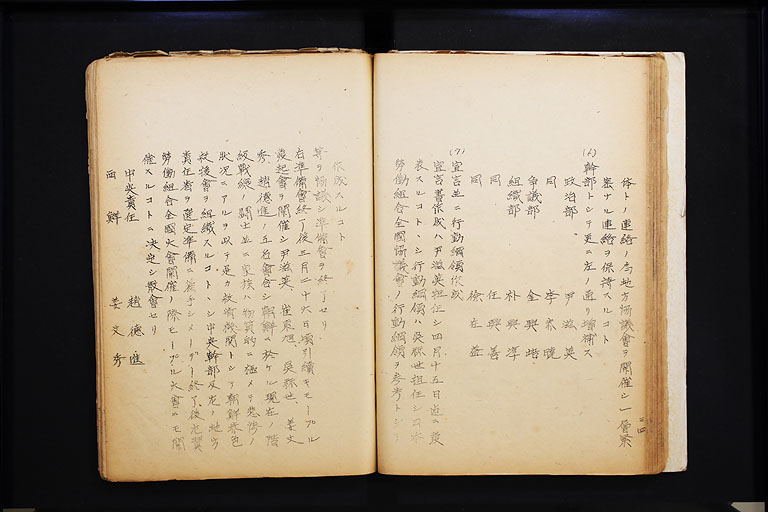 体トノ連絡ノ為地方協議會ヲ開催シ一層緊
密ナル連絡ヲ保持スルコト
幹部トシテ更ニ左ノ通リ増補ス
政治部 尹滋英
同 李
爭議部 金興
組織部 朴興準
同 任興善
同 徐在益
宣言並ニ行動綱領作成
宣言書作成ハ尹滋英担任シ四月十五日迄ニ發
表スルコトヽシ行動綱領ハ吳祭世担任シ日本
勞働組合全國協議會ノ行動綱領ヲ參考トシテ
作成スルコト
等ヲ協議シ準備會ヲ終了セリ
右準備會終了後三月二十六日頃引續キモープル
發起會ヲ開催シ尹滋英、崔 吳祭世、姜文
秀、趙德進ノ五名會合シ朝鮮ニ於ケル現在ノ階
級戰線ノ鬪士並ニ家族ハ物質的ニ極メテ悲慘ノ
狀況ニアルヲ以テ更ニ救援機關トシテ朝鮮赤色
救援會ヲ組織スルコトヽシ中央幹部及左ノ地方
責任者ヲ選定準備ニ着手シメーデー終了後
勞働組合全國大會開催ノ際モープル大會ヲモ開
催スルコトニ決定シ散會セリ
中央責任 趙德進
西鮮 姜文秀